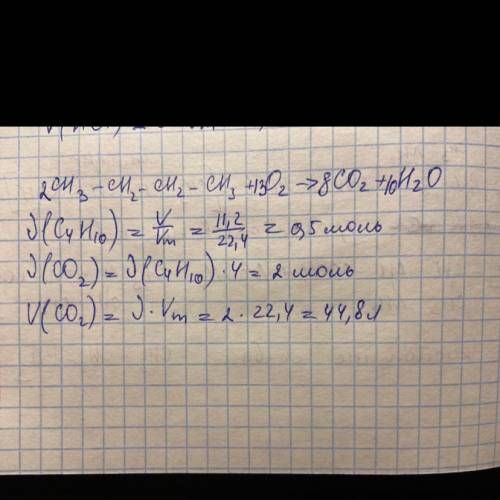 2CH₃-CH₂-CH₂-CH₃+13O₂→8CO₂+10H₂O
ν(C₄H₁₀)=V/Vm=11,2/22,4=0,5 моль
ν(CO₂)=ν(C₄H₁₀)·4=2 моль
V(CO₂)=ν·Vm=2·22,4=44,8л